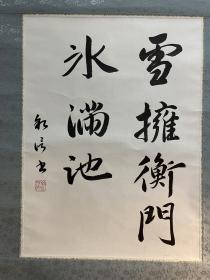 雪擁衡門
氷滿池